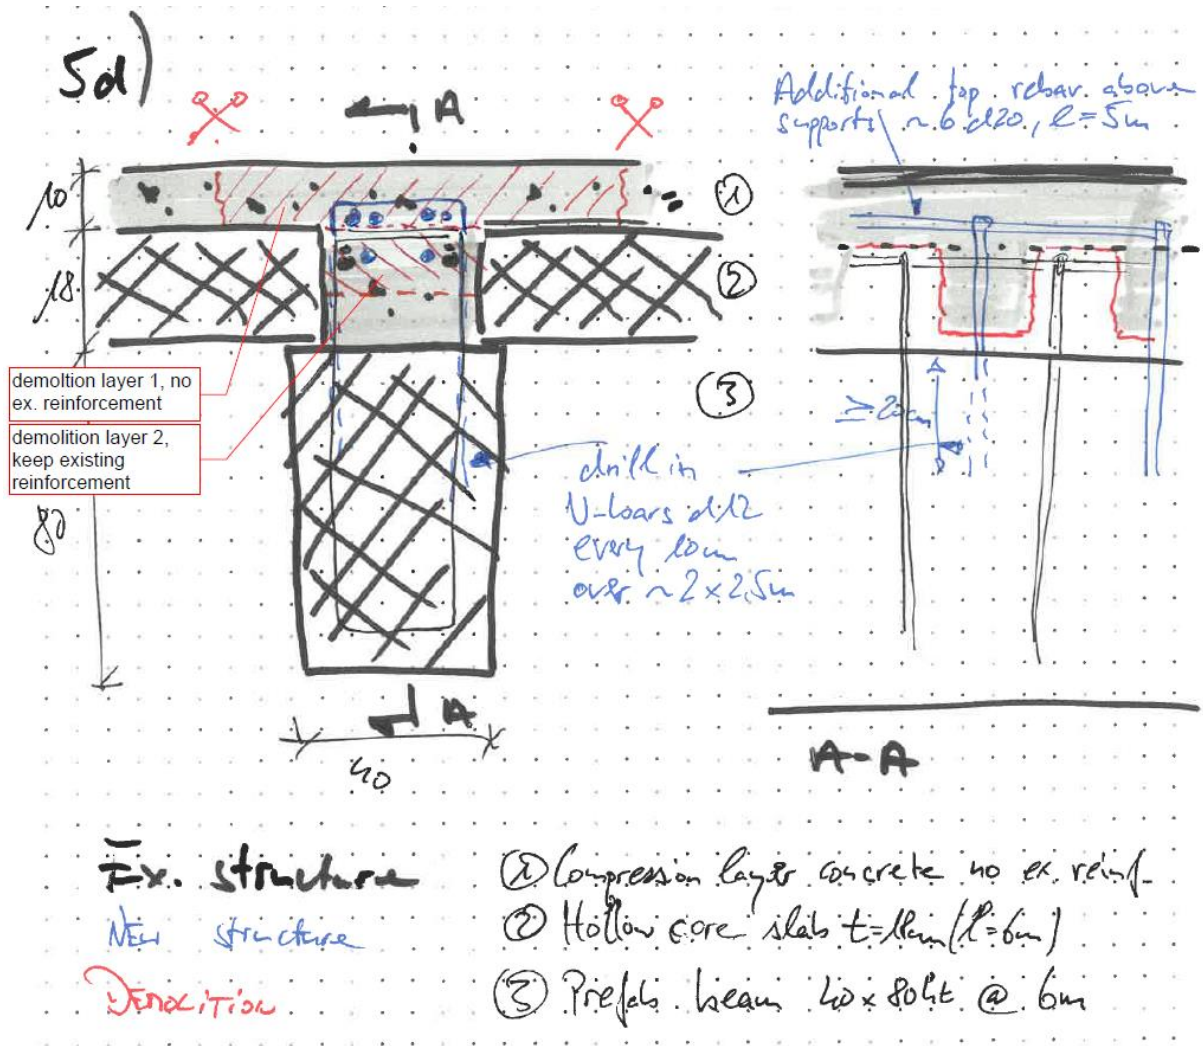 5d)
A
Additional top rebar above
supports ~ 6 d20, l=5m
10
①
18
②
demoltion layer 1, no
ex. reinforcement
③
demolition layer 2,
keep existing
reinforcement
≥20cm
drill in
U-bars d12
every 10cm
over ~ 2 x 2,5m
80
A
40
A-A
Ex. structure
NEW structure
DEMOLITION
① Compression layer concrete no ex. reinf.
② Hollow core slab t=18cm (l=6m)
③ Prefab beam 40 x 80ht @ 6m